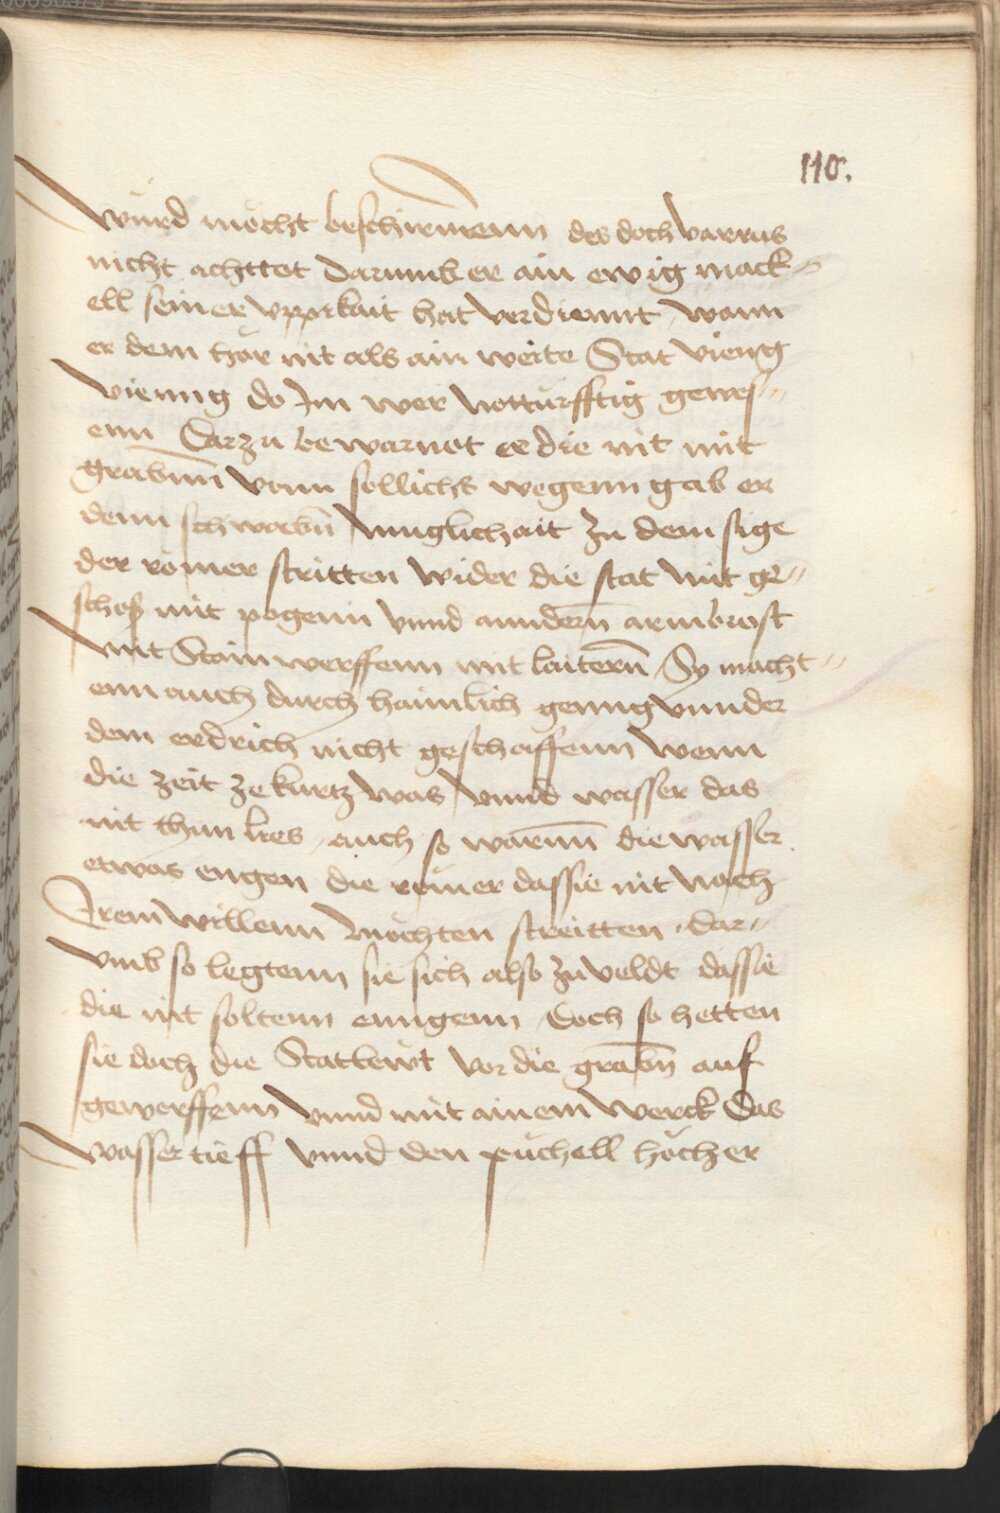 110.
wurd möcht beschirmenn des doch varrus
nicht achttet darumb er ain ewig mack-
ell seiner vppikait hat verdiennt wann
er dem her nit als ain weite Stat vieng
vienng do Im wer notturfftig gewes=
enn Darzu bewarnet er die nit mit
grabnn vonn sollichs wegenn gab er
denn schwabn muglichait zu dem sige
der römer stritten wider die stat mit ge=
schoß mit pogenn vnnd anndern armbrost
mit Stain werffenn mit laitern Sy macht=
enn auch durch haimlich genng vnnder
dem erdrich nicht geschaffenn wenn
die zeit ze kurtz was vnnd wasser das
nit thun lies auch so warnn die wasser
etwas engen die römer dassie nit nach
Irem willenn mochten streitten dar=
vmb so legtenn sie sich also zu veldt dassie
die nit soltenn enngenn doch so hetten
sie doch die Statlewt vor die grabn auf
geworffenn vnnd mit ainem werck das
wasser tieff vnnd den püchell höcher